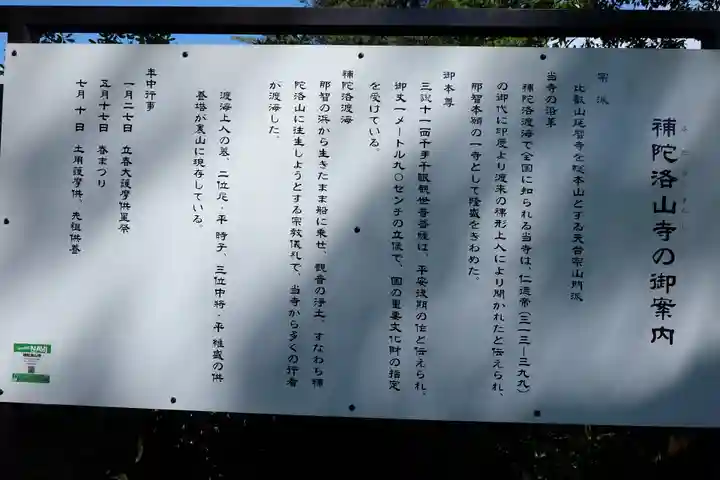 補陀洛山寺の御案内
宗派
比叡山延暦寺を総本山とする天台宗山門派
当寺の沿革
補陀洛渡海で全国に知られる当寺は、仁徳帝（三一三―三九九）
の御代に印度より渡来の裸形上人により開かれたと伝えられ、
那智本願の一寺として隆盛をきわめた。
御本尊
三貌十一面千手千眼観世音菩薩は、平安後期の作と伝えられ。
御丈一メートル九〇センチの立像で、国の重要文化財の指定
を受けている。
補陀洛渡海
那智の浜から生きたまま船に乗せ、観音の浄土、すなわち補
陀洛山に往生しようとする宗教儀礼で、当寺から多くの行者
が渡海した。
渡海上人の墓、二位尼・平 時子、三位中将・平 維盛の供
養塔が裏山に現存している。
年中行事
一月二七日 立春大護摩供星祭
五月十七日 春まつり
七月 十 日 土用護摩供、先祖供養